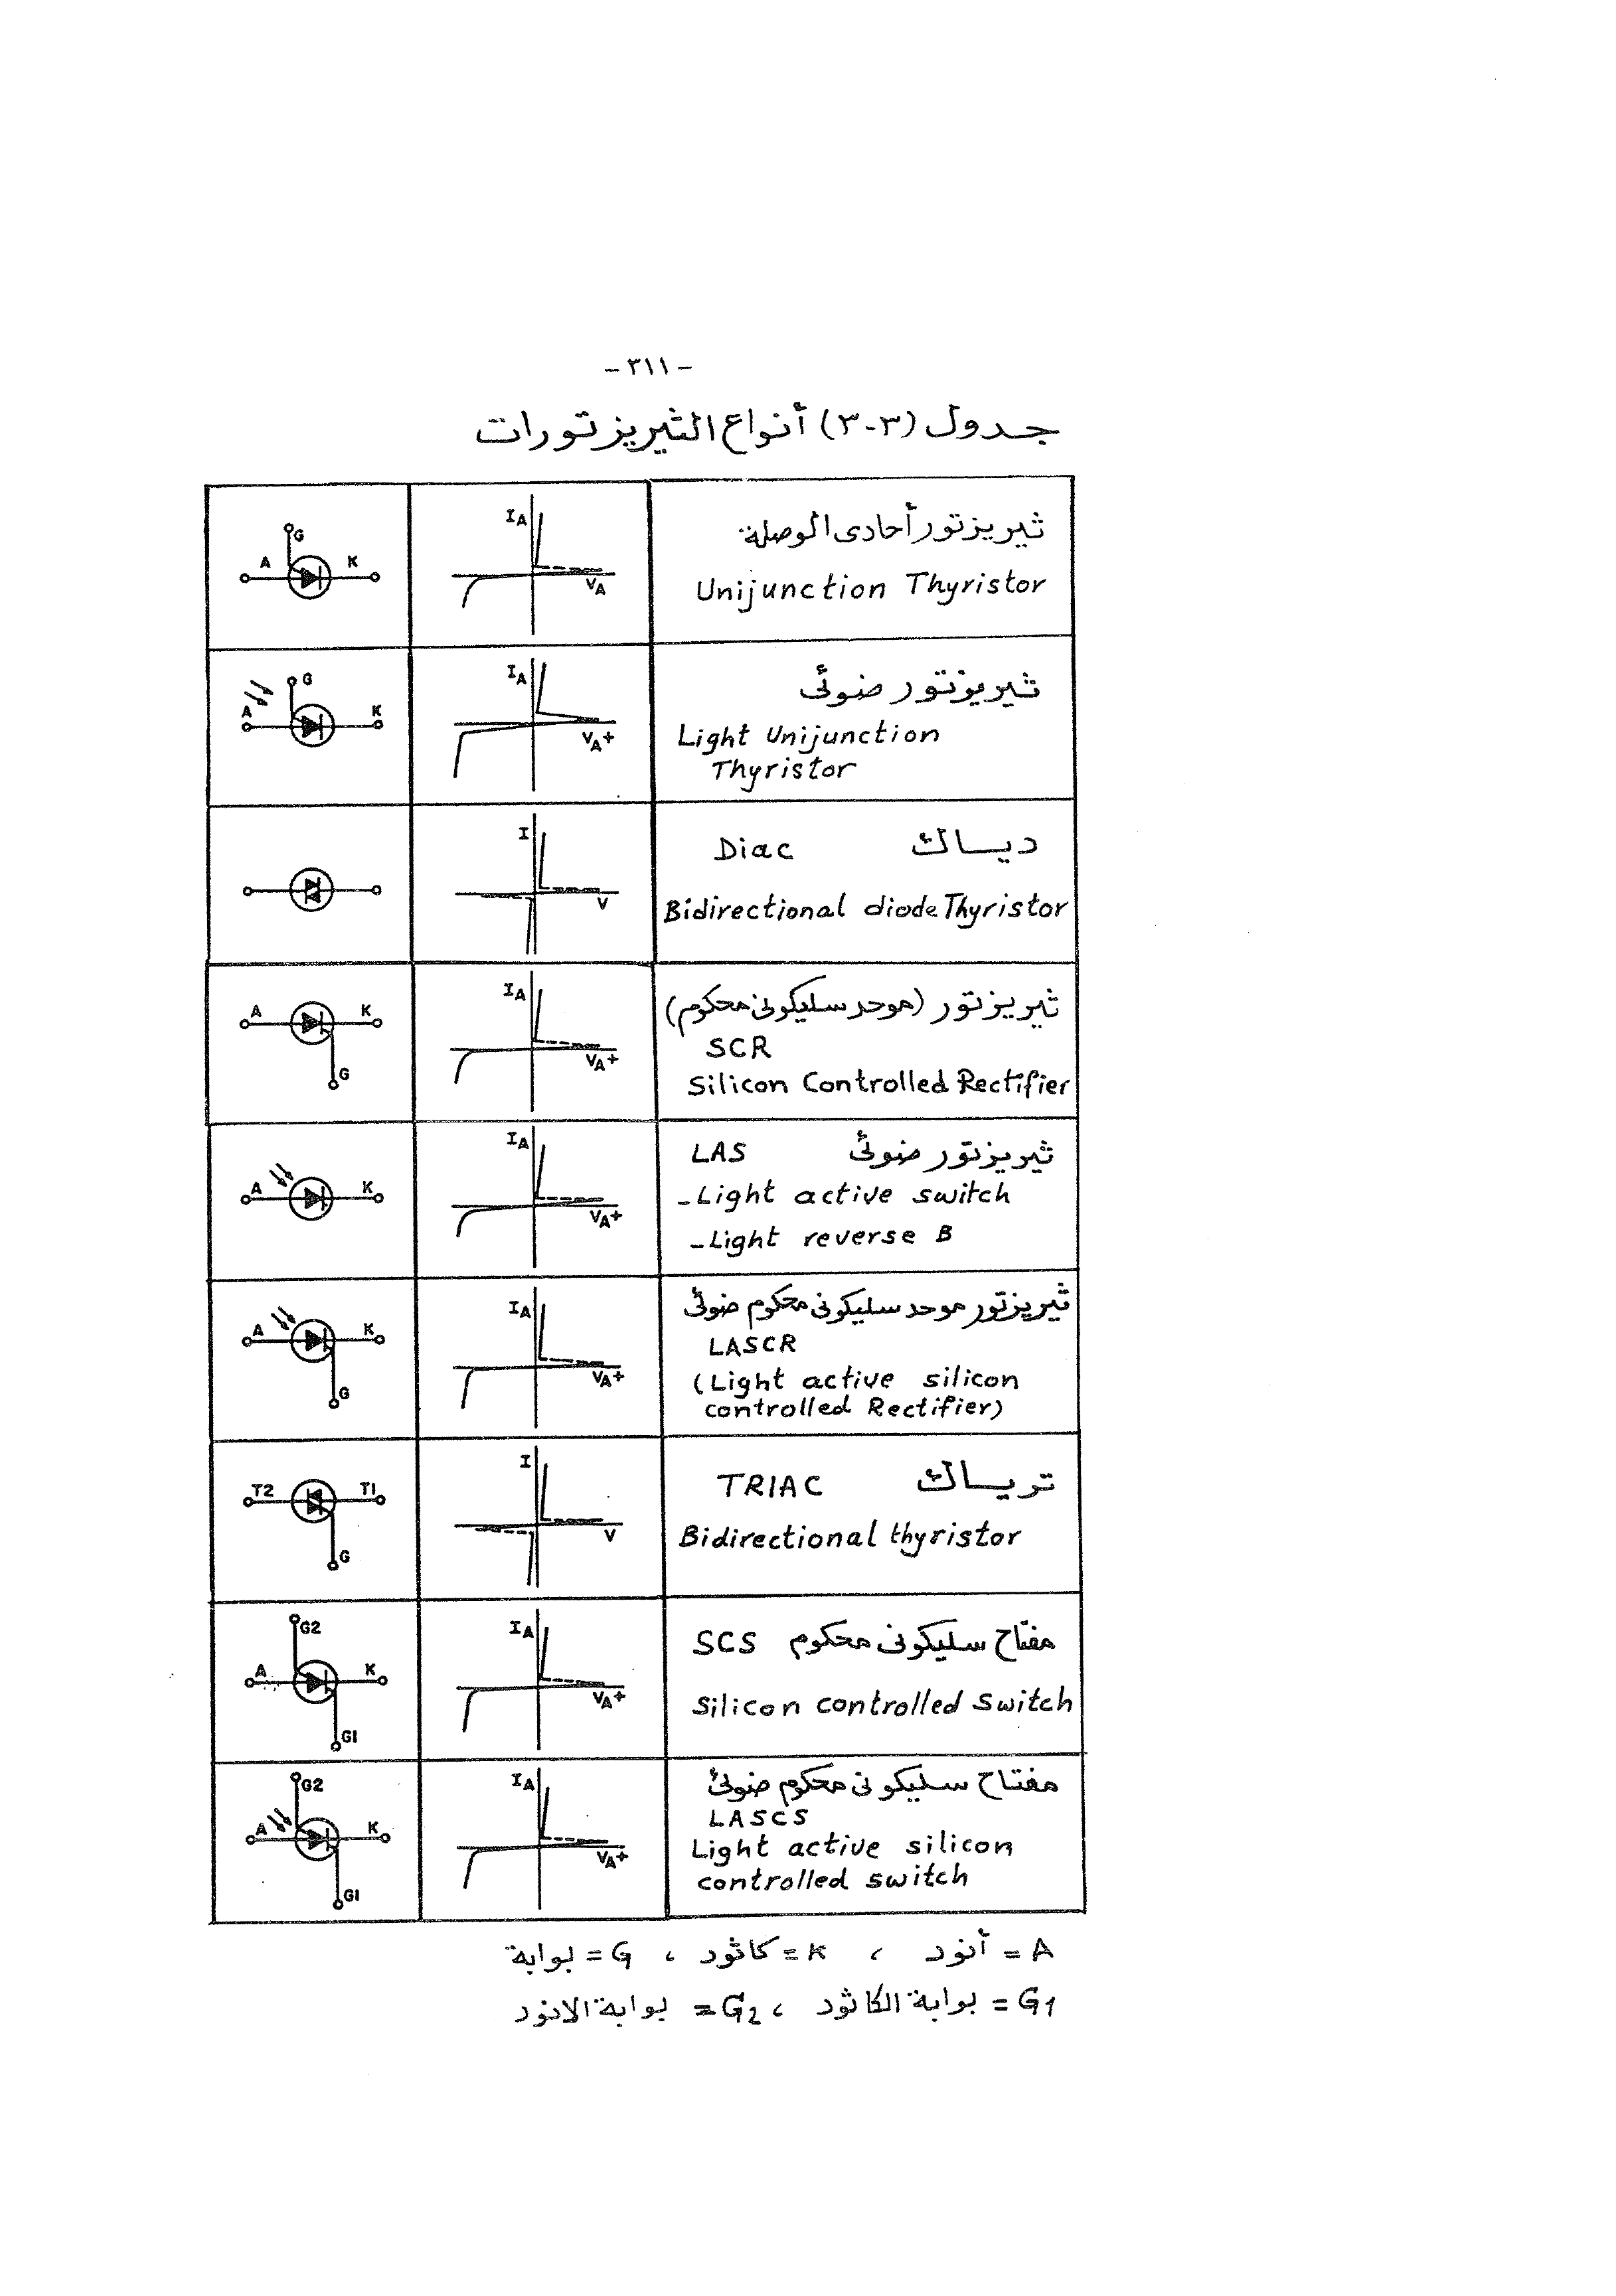 - ٣١١ -
جدول (٣-٣) أنواع الثيريزتورات
ثيريزتور أحادى الوصلة
Unijunction Thyristor
I A
V A
G
A
K
ثيريزتور ضوئى
Light Unijunction
Thyristor
I A
V A +
G
A
K
دياك Diac
Bidirectional diode Thyristor
I
V
ثيريزتور (موحد سليكونى محكوم)
SCR
Silicon Controlled Rectifier
I A
V A +
A
K
G
ثيريزتور ضوئى LAS
- Light active switch
- Light reverse B
I A
V A +
A
K
ثيريزتور موحد سليكونى محكوم ضوئى
LASCR
(Light active silicon
controlled Rectifier)
I A
V A +
A
K
G
ترياك TRIAC
Bidirectional thyristor
I
V
T2
T1
G
مفتاح سليكونى محكوم SCS
Silicon controlled switch
I A
V A +
G2
A
K
G1
مفتاح سليكونى محكوم ضوئى
LASCS
Light active silicon
controlled switch
I A
V A +
G2
A
K
G1
A = أنود ، K = كاثود ، G = بوابة
G1 = بوابة الكاثود ، G2 = بوابة الانود